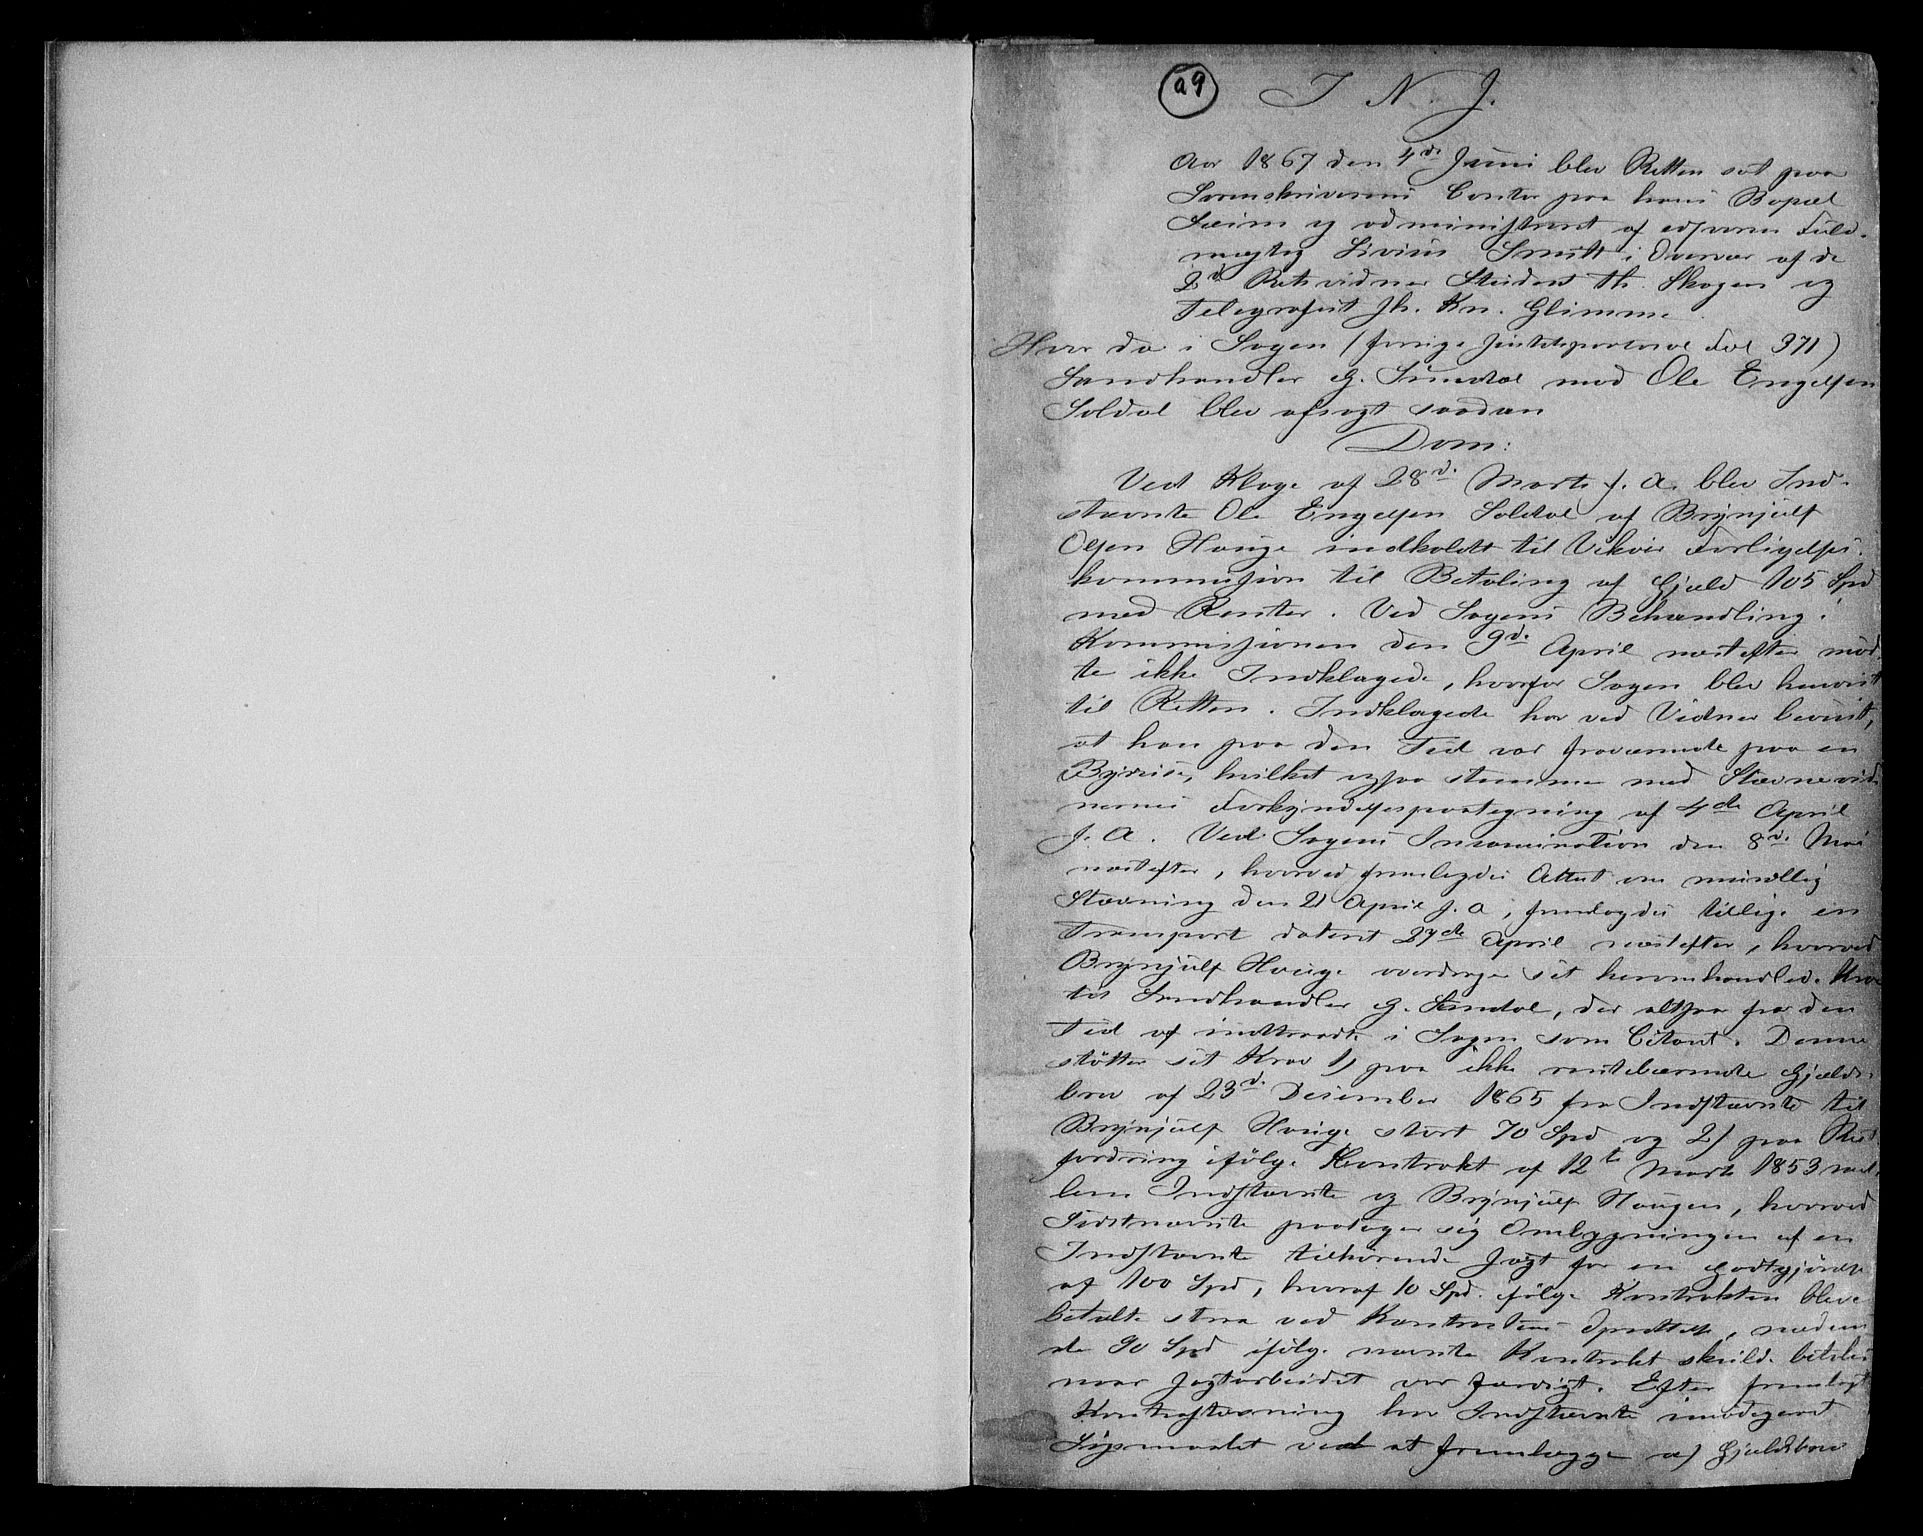 a9
I N J.
Aar 1867 den 4de Juni blev Retten sat paa
Sorenskriverens Contor paa hans Bopæl
Seim og administreret af edsvoren Fuld-
mægtig Livius Smitt i Overvær af de
2de Retsvidner Student Th. Skogen og
Telegrafist Joh. Kn. Glimme.
Hvor da i Sagen (forrige Justitsprotocol Fol 371)
Landhandler G. Sundal mod Ole Engelsen
Soldal blev afsagt saadan
Dom:
Ved Klage af 28d. Marts f. A. blev Ind-
stævnte Ole Engelsen Soldal af Brynjulf
Olsen Hauge indkaldt til Vikør Forligelses-
kommission til Betaling af Gjæld 105 Spd
med Renter. Ved Sagens Behandling i
Kommissionen den 9d. April næstefter mød-
te ikke Indklagede, hvorfor Sagen blev henvist
til Retten. Indklagede har ved Vidner bevist,
at han paa den Tid var fraværende paa en
Byreise, hvilket ogsaa stemmer med Stævnevid-
nernes Forkyndelsespaategning af 4de April
f. A. Ved Sagens Incamination den 8d. Mai
næstefter, hvorved fremlagdes Attest om mundtlig
Stævning den 21 April f. A, fremlagdes tillige en
Transport dateret 27de April næstefter, hvorved
Brynjulf Hauge overdrager sit heromhandlede Krav
til Landhandler G. Sundal, der altsaa fra den
Tid af indtraadte i Sagen som Citant. Denne
støtter sit Krav 1) paa ikke rentebærende Gjælds-
brev af 23d. Desember 1865 fra Indstævnte til
Brynjulf Hauge stort 70 Spd og 2) paa Rest-
fordring ifølge Kontrakt af 12te Marts 1853 mel-
lem Indstævnte og Brynjulf Haugen, hvorved
Sidstnævnte paatager sig Ombygningen af en
Indstævnte tilhørende Jagt for en Godtgjørelse
af 100 Spd, hvoraf 10 Spd. ifølge Kontrakten bleve
betalte strax ved Kontraktens Oprettelse, medens
de 90 Spd ifølge nævnte Kontrakt skulde betales
naar Jagtarbeidet var færdigt. Efter fremlagt
Kontrastævning har Indstævnte imødegaaet
Søgsmaalet ved at fremlægge a) Gjældsbrev